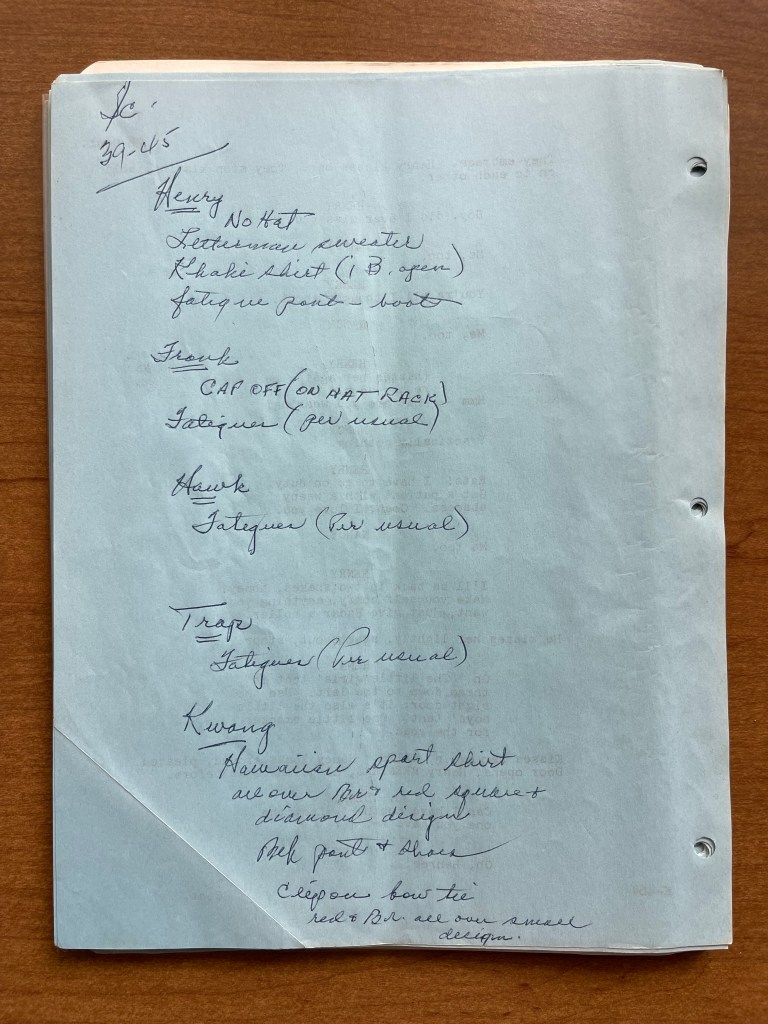 Sc.
39-45
Henry
No Hat
Letterman sweater
Khaki shirt (1 B. open)
fatigue pant - boots
Frank
CAP OFF (ON HAT RACK)
Fatigues (per usual)
Hawk
Fatigues (Per usual)
Trap
Fatigues (Per usual)
Kwang
Hawaiian sport shirt
all over Br & red square &
diamond design
Blk pants & shoes
Clip on bow tie
red & Br. all over small
design.